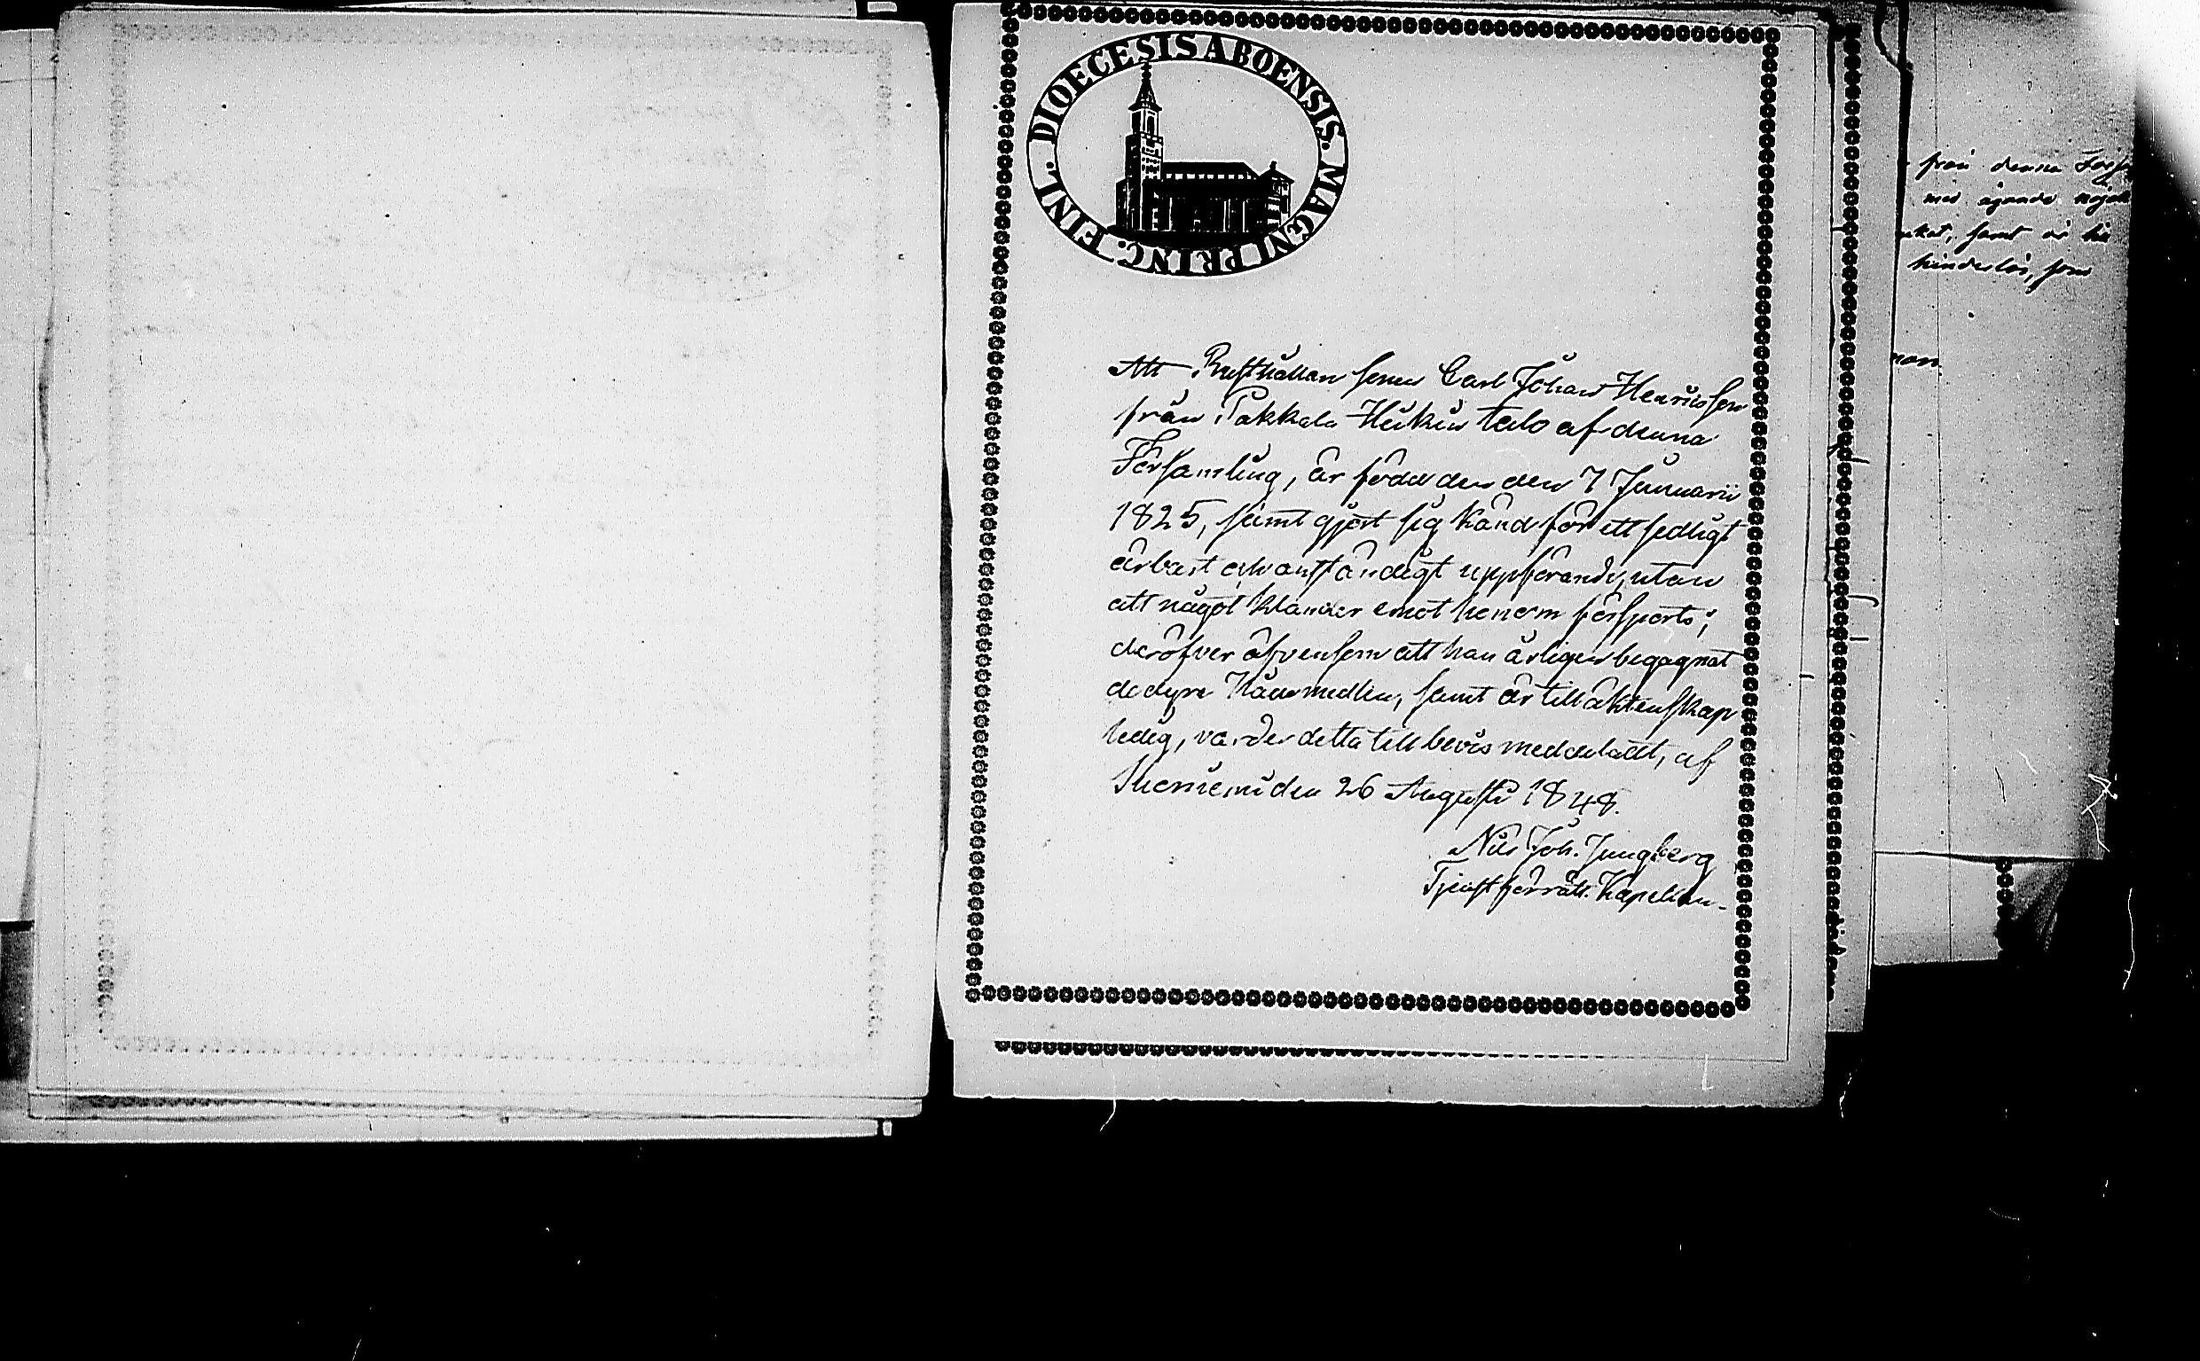 DIOECESIS ABOENSIS. MAGNI PRINC. FINL.
Att Rusthållare sonen Carl Johan Henricsson
från Pakkala Heikis talo af denna
Församling, är född den den 7 Januarii
1825, samt gjort sig känd för ett sedligt
ärbart och anständigt uppförande, utan
att något klander emot honom försports;
deröfver äfvensom att han årligen begagnat
de dyra Nådemedlen, samt är till äktenskap
ledig, varder detta till bevis meddeladt, af
den 26 Augusti 1848.
Nils Joh. Ljungberg
Tjenstförrätt. Kapellan.
från denna
med ägande
samt är
hinderlös, som